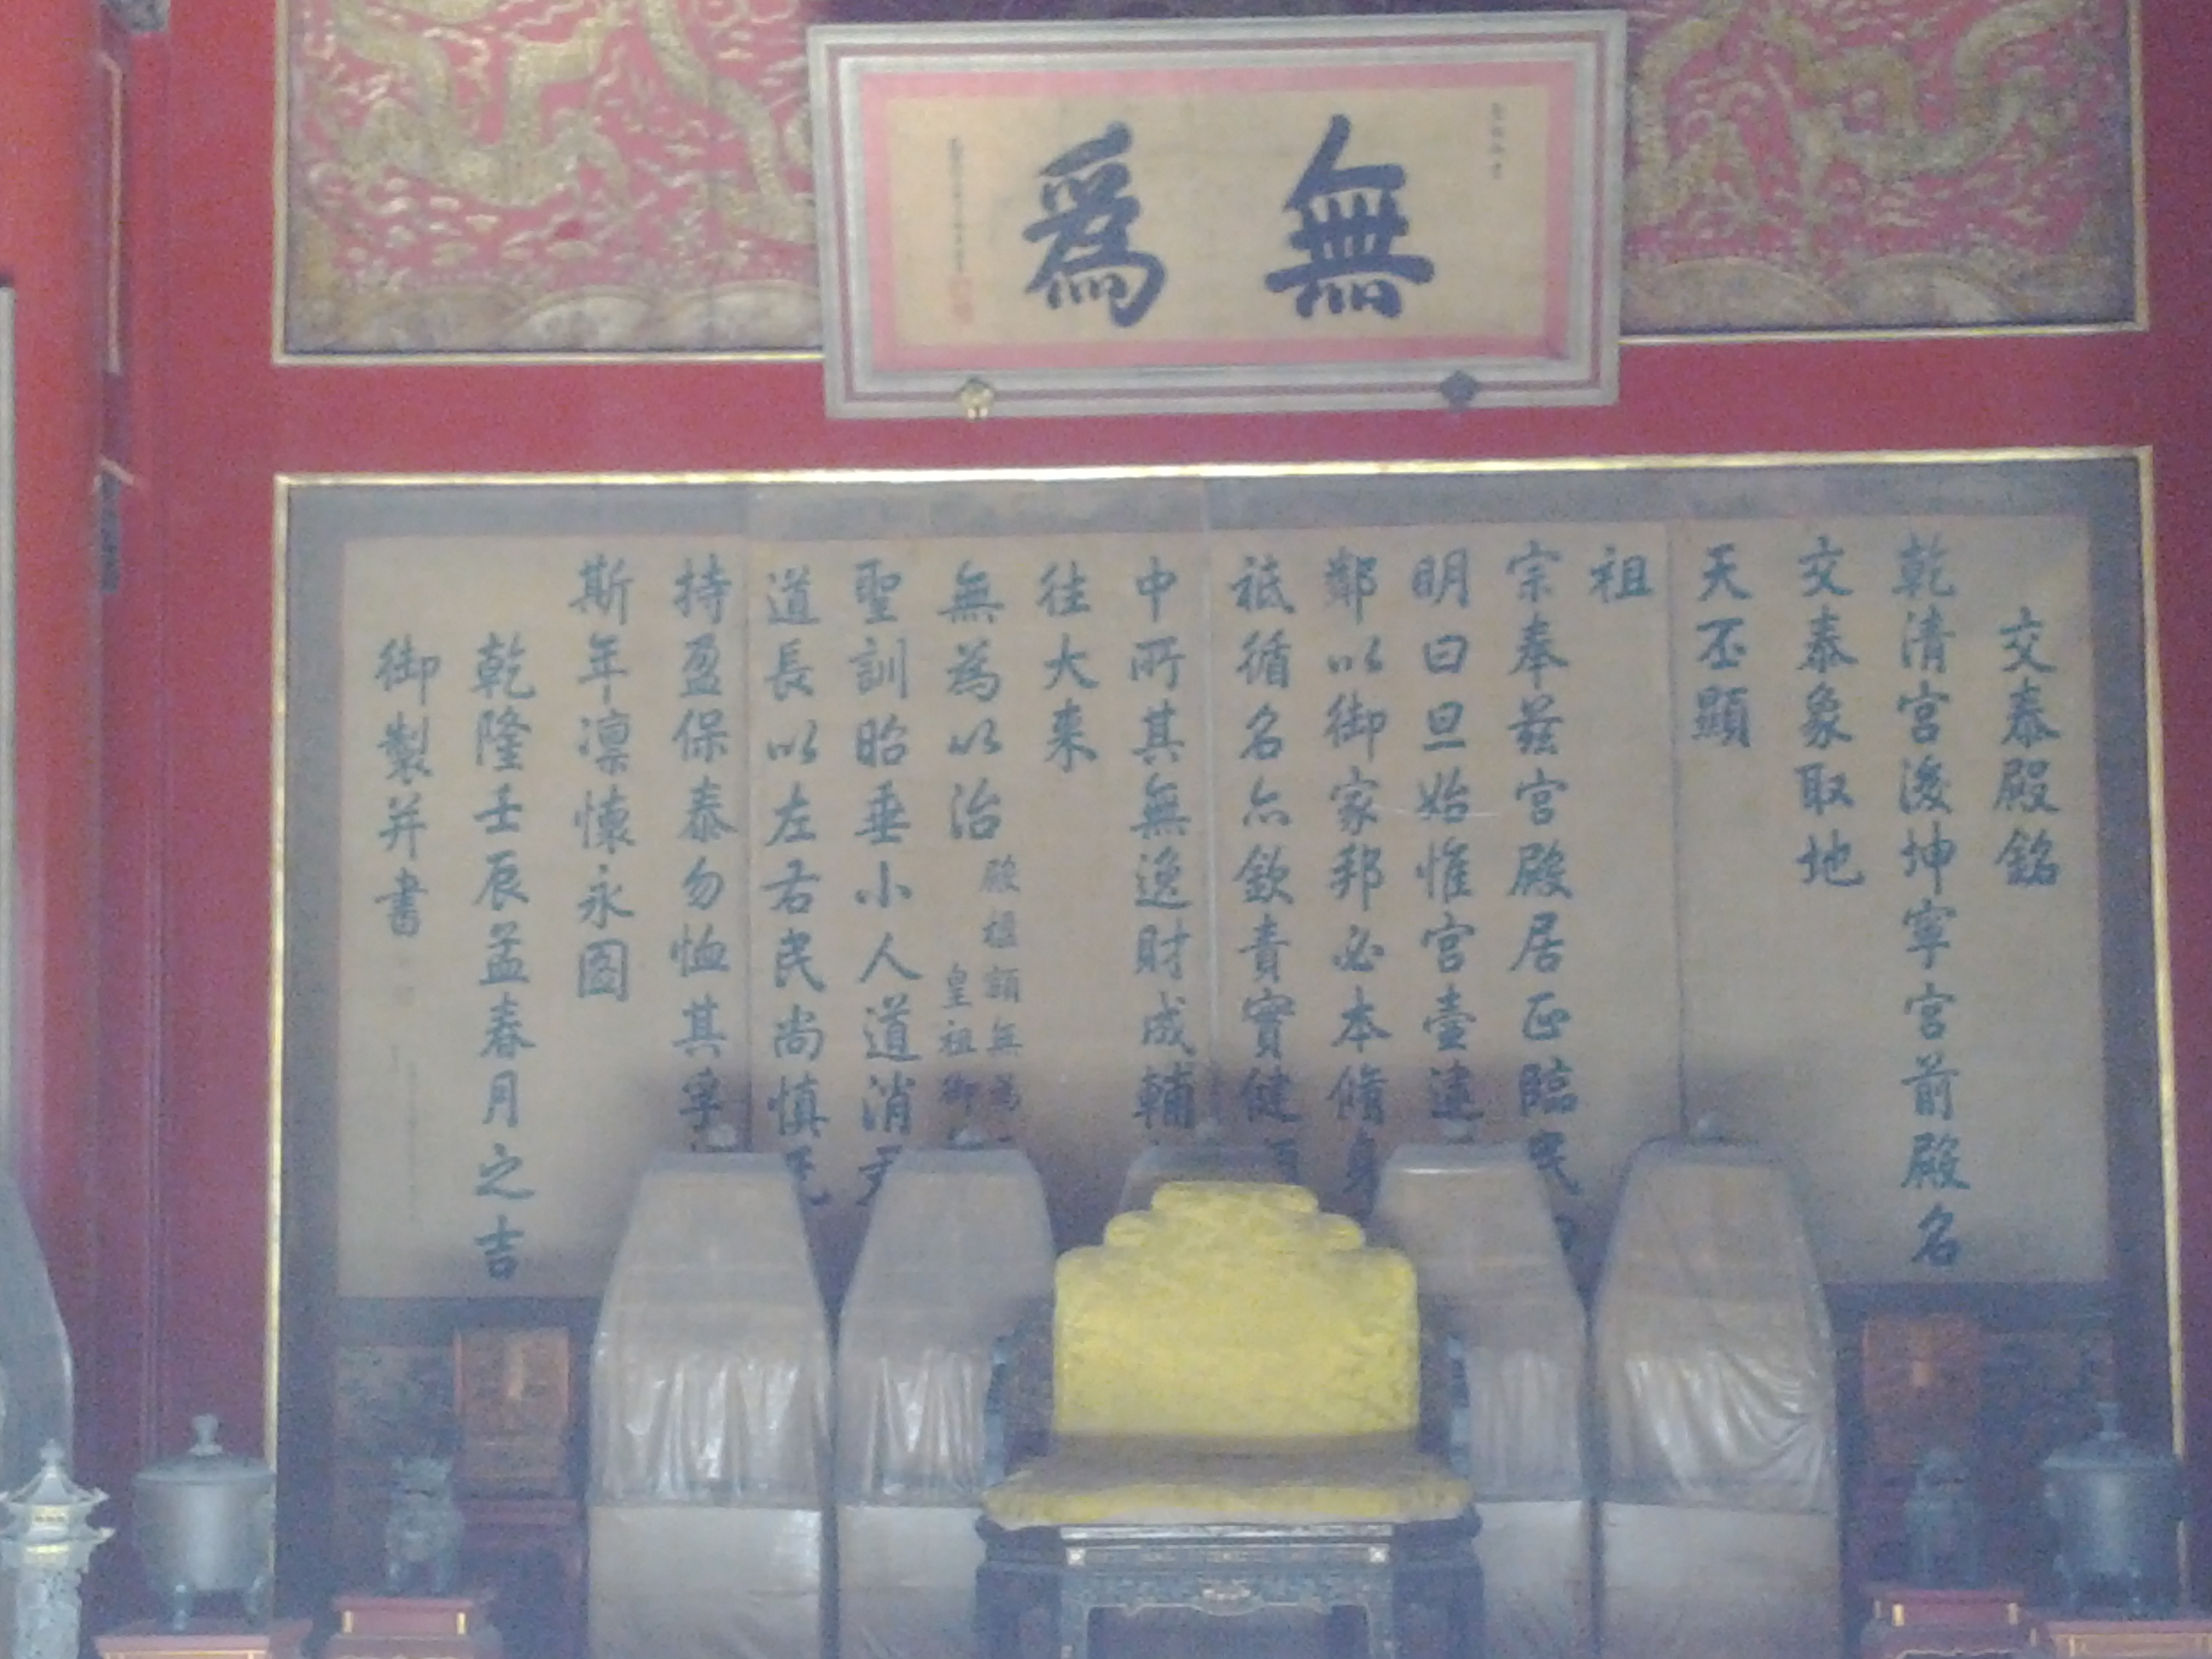 無爲
交泰殿銘
乾清宮後坤寧宮前殿名
交泰象取地
天丕顯
祖
宗奉茲宮殿居正臨民
明曰旦始惟宮壼違
鄰以御家邦必本脩身
祗循名亦欽責實健
中所其無逸財成輔
往大来
無為以治
殿楹額無為
皇祖御
聖訓昭垂小人道消天
道長以左右民尚慎
持盈保泰勿恤其孚
斯年凛懷永圖
乾隆壬辰孟春月之吉
御製并書